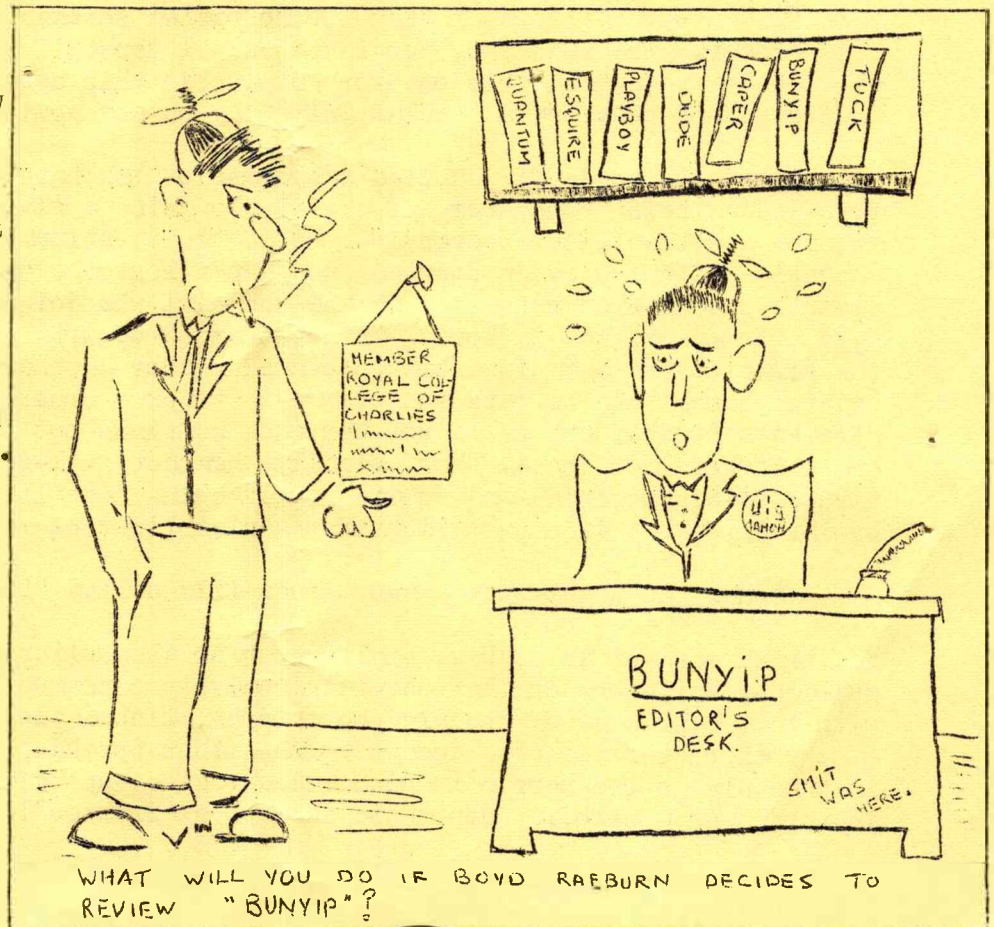 QUANTUM
ESQUIRE
PLAYBOY
DUDE
CAPER
BUNYIP
TUCK
MEMBER
ROYAL COL-
LEGE OF
CHARLIES
BUNYIP
EDITOR'S
DESK.
SMIT
WAS
HERE.
WHAT WILL YOU DO IF BOYD RAEBURN DECIDES TO
REVIEW "BUNYIP"?